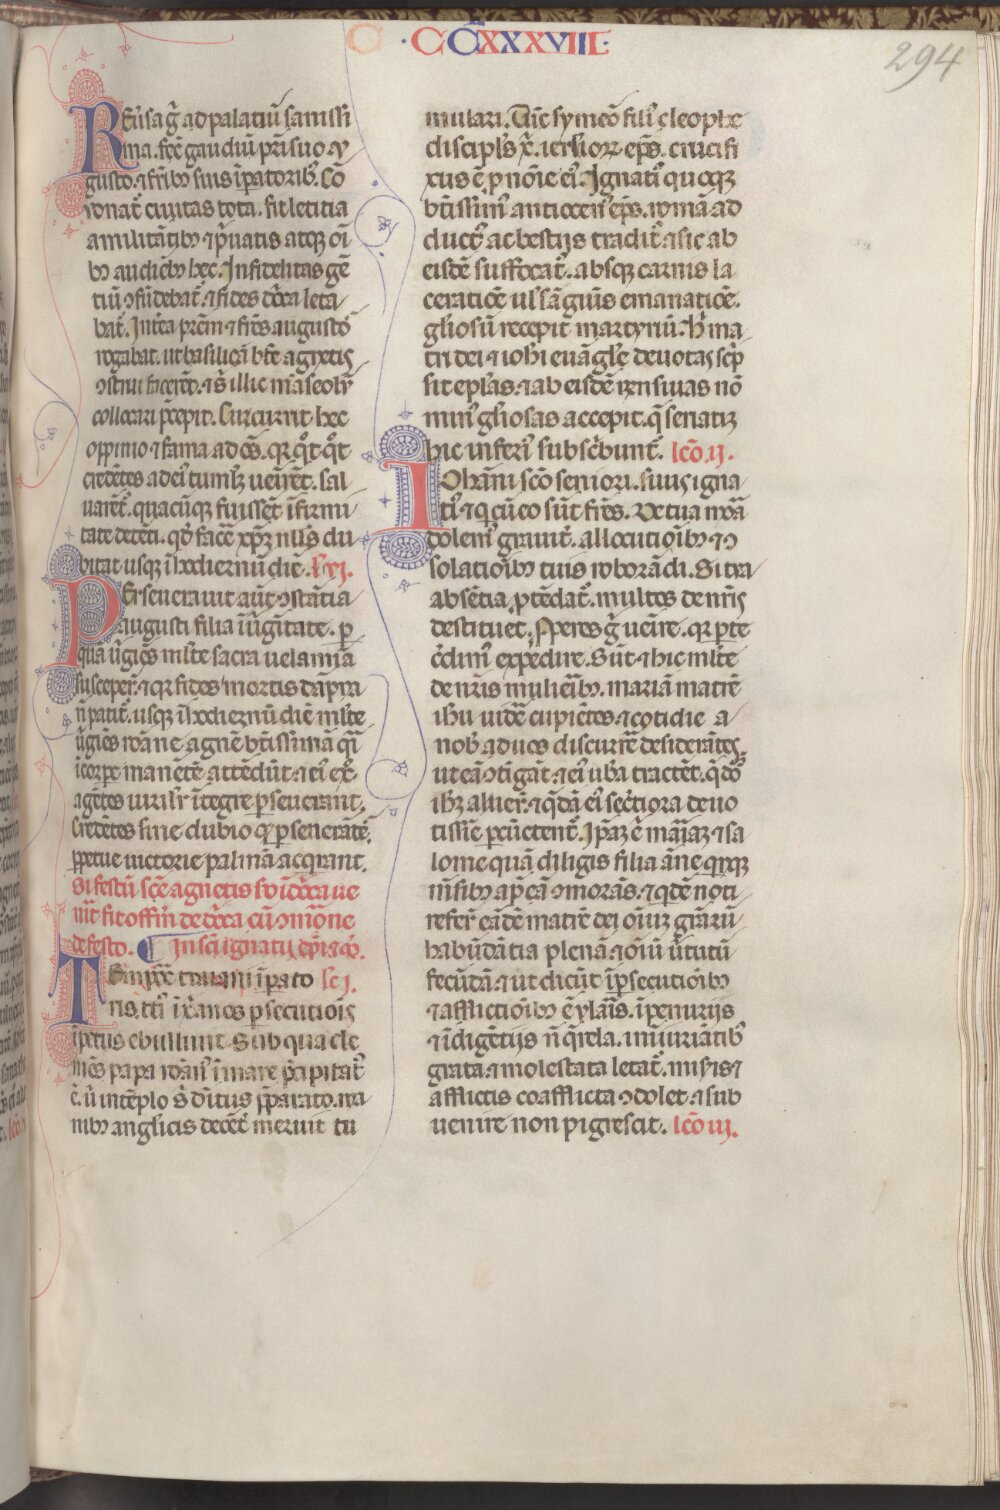 C · CCXXXVIII:
294
REūsa g̃ ad palatiū sanissi
ma. fec̃ gaudiū p̃ri suo. ⁊
gusto. ⁊ fr̃ibꝫ suis ip̃atoribꝫ. Co
ronat̃ ciuitas tota. fit letitia
a militātibꝫ ⁊ p̃uatis atqꝫ oĩ
bꝫ audiētibꝫ hec. Infidelitas gē
tiū ↄfūdebat̃. ⁊ fides dn̄ica leta
bat̃. Int̃ea pr̃em ⁊ fr̃es augustos
rogabat. ut basilicā bt̃e agnetis
ↄstrui faceret. ⁊ s̃ illic maseolm̄
collocari p̃cepit. Cucurrit hec
oppinio ⁊ fama ad oēs. ⁊ qꝫ qͦt qͦt
credētes ad eiꝰ tumlꝫ uenīet. sal
uaret̃. quacūqꝫ fuissēt ifirmi
tate detēti. qd̓ facē xp̃m nllꝰ du
bitat usqꝫ ī hodiernū diē. l̃ vi.
PErseuerauit aūt ↄstātia
augusti filia ī ũgīitate. p̱
quā ũgiēs ml̃te sacra uelamīa
susceper̃. ⁊ qꝫ fides mortis dāpna
n̄ patit̃. usqꝫ ī hodiernū diē ml̃te
ũgiēs romāne agnē bt̃issimā q̃ i
ī corpe manētē attēdūt. ⁊ ei ex̃
agētes uirilr̃ ītegre p̱seuerant.
Credētes sine dubio qꝫ p̱seuerātes
ppetue uictorie palmā acqrant.
Si festū sc̃e agnetis fu ī dn̄ica ue
nīt fit offm̄ de dn̄ica cū ↄmem̃one
de festo. ¶ In sc̃i ignatii ep̃i ⁊ m̃.
TEmp̱re traiani ip̃ato lc̃ i.
ris. tt̃i ī xp̃ianos p̱secutiois
īpetus ebulliunt. Sub qua cle
mēs papa romãnꝰ ī mare p̃cipitat̃
c̃. ũ in tēplo s̃ diuinitus p̃parato. ma
nibꝫ anglicis decēt̃ meruit tu
mulari. Tūc symeō filiꝰ cleophe
discipls̃ x̃. ierl̃ioꝝ ep̃s. crucifi
xus ē p nōie eiꝰ. Ignatiꝰ quoqꝫ
bt̃issimꝰ antiocenꝰ ep̃s. romā ad
ductꝰ ac bestijs tradit̃. ⁊ sic ab
eisdē suffocat̃. absqꝫ carnis la
ceratiōe ul̓ sāguīs emanatiōe.
gl̓iosū recepit martyriū. Hic ma
tri dei ⁊ iohi euāgl̓e deuotas sc̃p
sit ep̃las. ⁊ ab eisdē responsiuas nō
minꝰ gl̓iosas accepit. q̃ seriatiꝫ
hic inferiꝰ subsc̃bunt̃. lc̃o .ij.
IOhāni sc̃o seniori. suus igna
tiꝰ. ⁊ q̃ cū eo sūt fr̃es. De tua mora
dolemꝰ grauit̃. allocutioibꝫ ⁊ ↄ
solatioibꝫ tuis roborādi. Si tua
absētia p̱tēdat̃. multos de nr̃is
destituet. Properes g̃ ueīre. qꝫ p̱te
c̃dimꝰ expedire. Sūt ⁊ hic ml̃te
de nr̃is mulieribꝫ. mariā matrē
ihu uidē cupiētes. ⁊ cotidie a
nobꝰ ad uos discurr̃e desiderātes.
ut eā ↄtigāt. ⁊ eiꝰ ub̃a tractēt. q̃ dōs
ihꝫ aluer̃. ⁊ qdā eiꝰ sec̃tiora deuo
tissīe p̱cūctent̃. Ip̃aꝫ ē maīaꝫ ⁊ sa
lome quā diligis filia āne quīqꝫ
mēsibꝫ ap̃ eā ↄmorās. ⁊ qdē noti
refer̃ eādē matrē dei oīuꝫ gr̃arū
habūdātia plenā. ⁊ oīū ũtutū
fecūdā. ⁊ ut dicūt ī p̱secutioibꝫ
⁊ afflictioibꝫ ē ylaris. ī penurijs
⁊ īdigētijs n̄ q̃rela. iniuriātibꝫ
grata. ⁊ molestata letat̃. mis̃is ⁊
afflictis coafflicta ↄdolet. ⁊ sub
uenire non pigrescit. lc̃o iij.